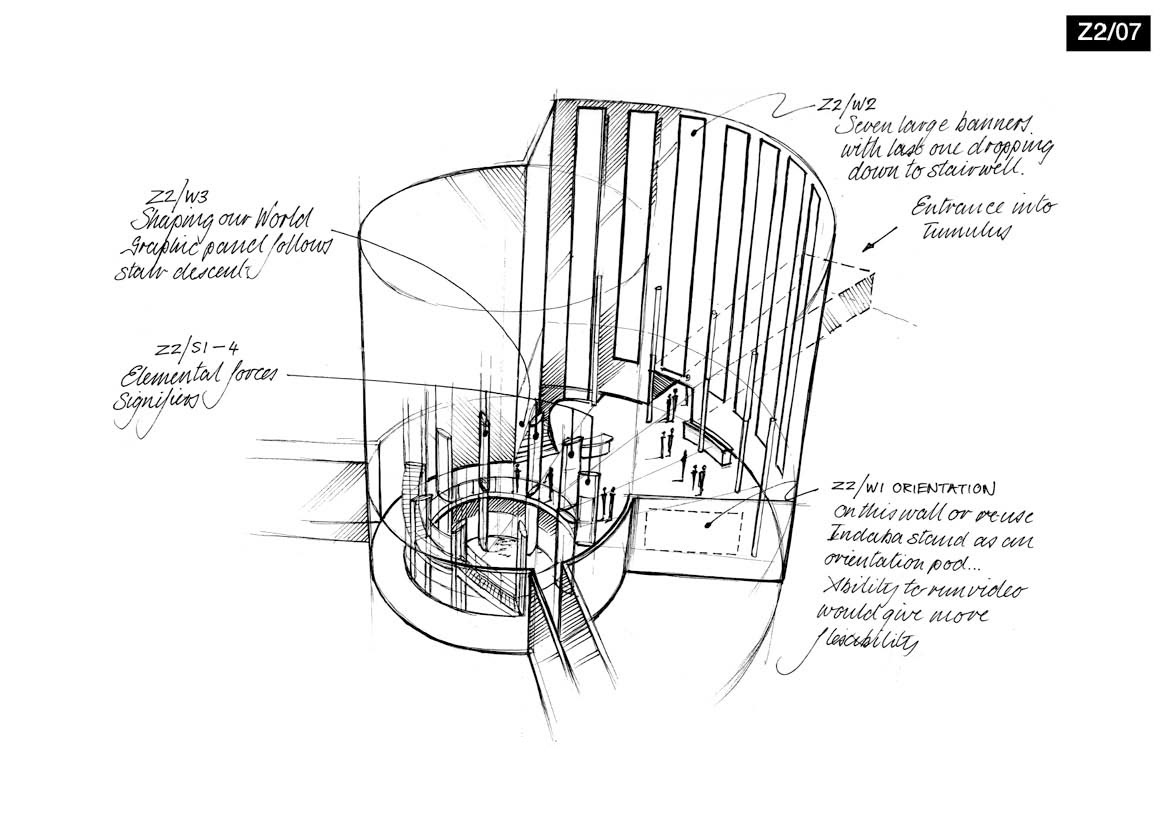 Z2/07
Z2/W2
Seven large banners.
with last one dropping
down to stairwell.
Entrance into
Tumulus
Z2/W3
Shaping our World
Graphic panel follows
stair descent
Z2/S1-4
Elemental forces
Signifiers
Z2/W1 ORIENTATION
on this wall or re-use
Indaba stand as an
orientation pod...
Ability to run video
would give more
flexibility